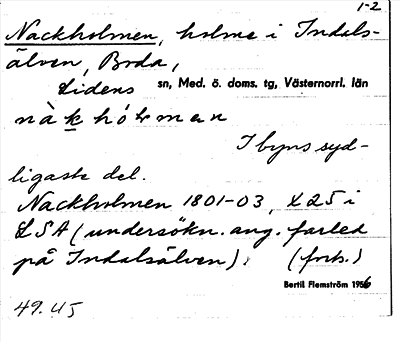 1-2
Nackholmen, holme i Indals-
älven, Boda,
Lidens sn, Med. ö. doms. tg, Västernorrl. län
nàkhólman
I byns syd-
ligaste del.
Nackholmen 1801-03, X25 i
LSA (undersökn. ang. farled
på Indalsälven). (forts.)
Bertil Flemström 1956
49. U5